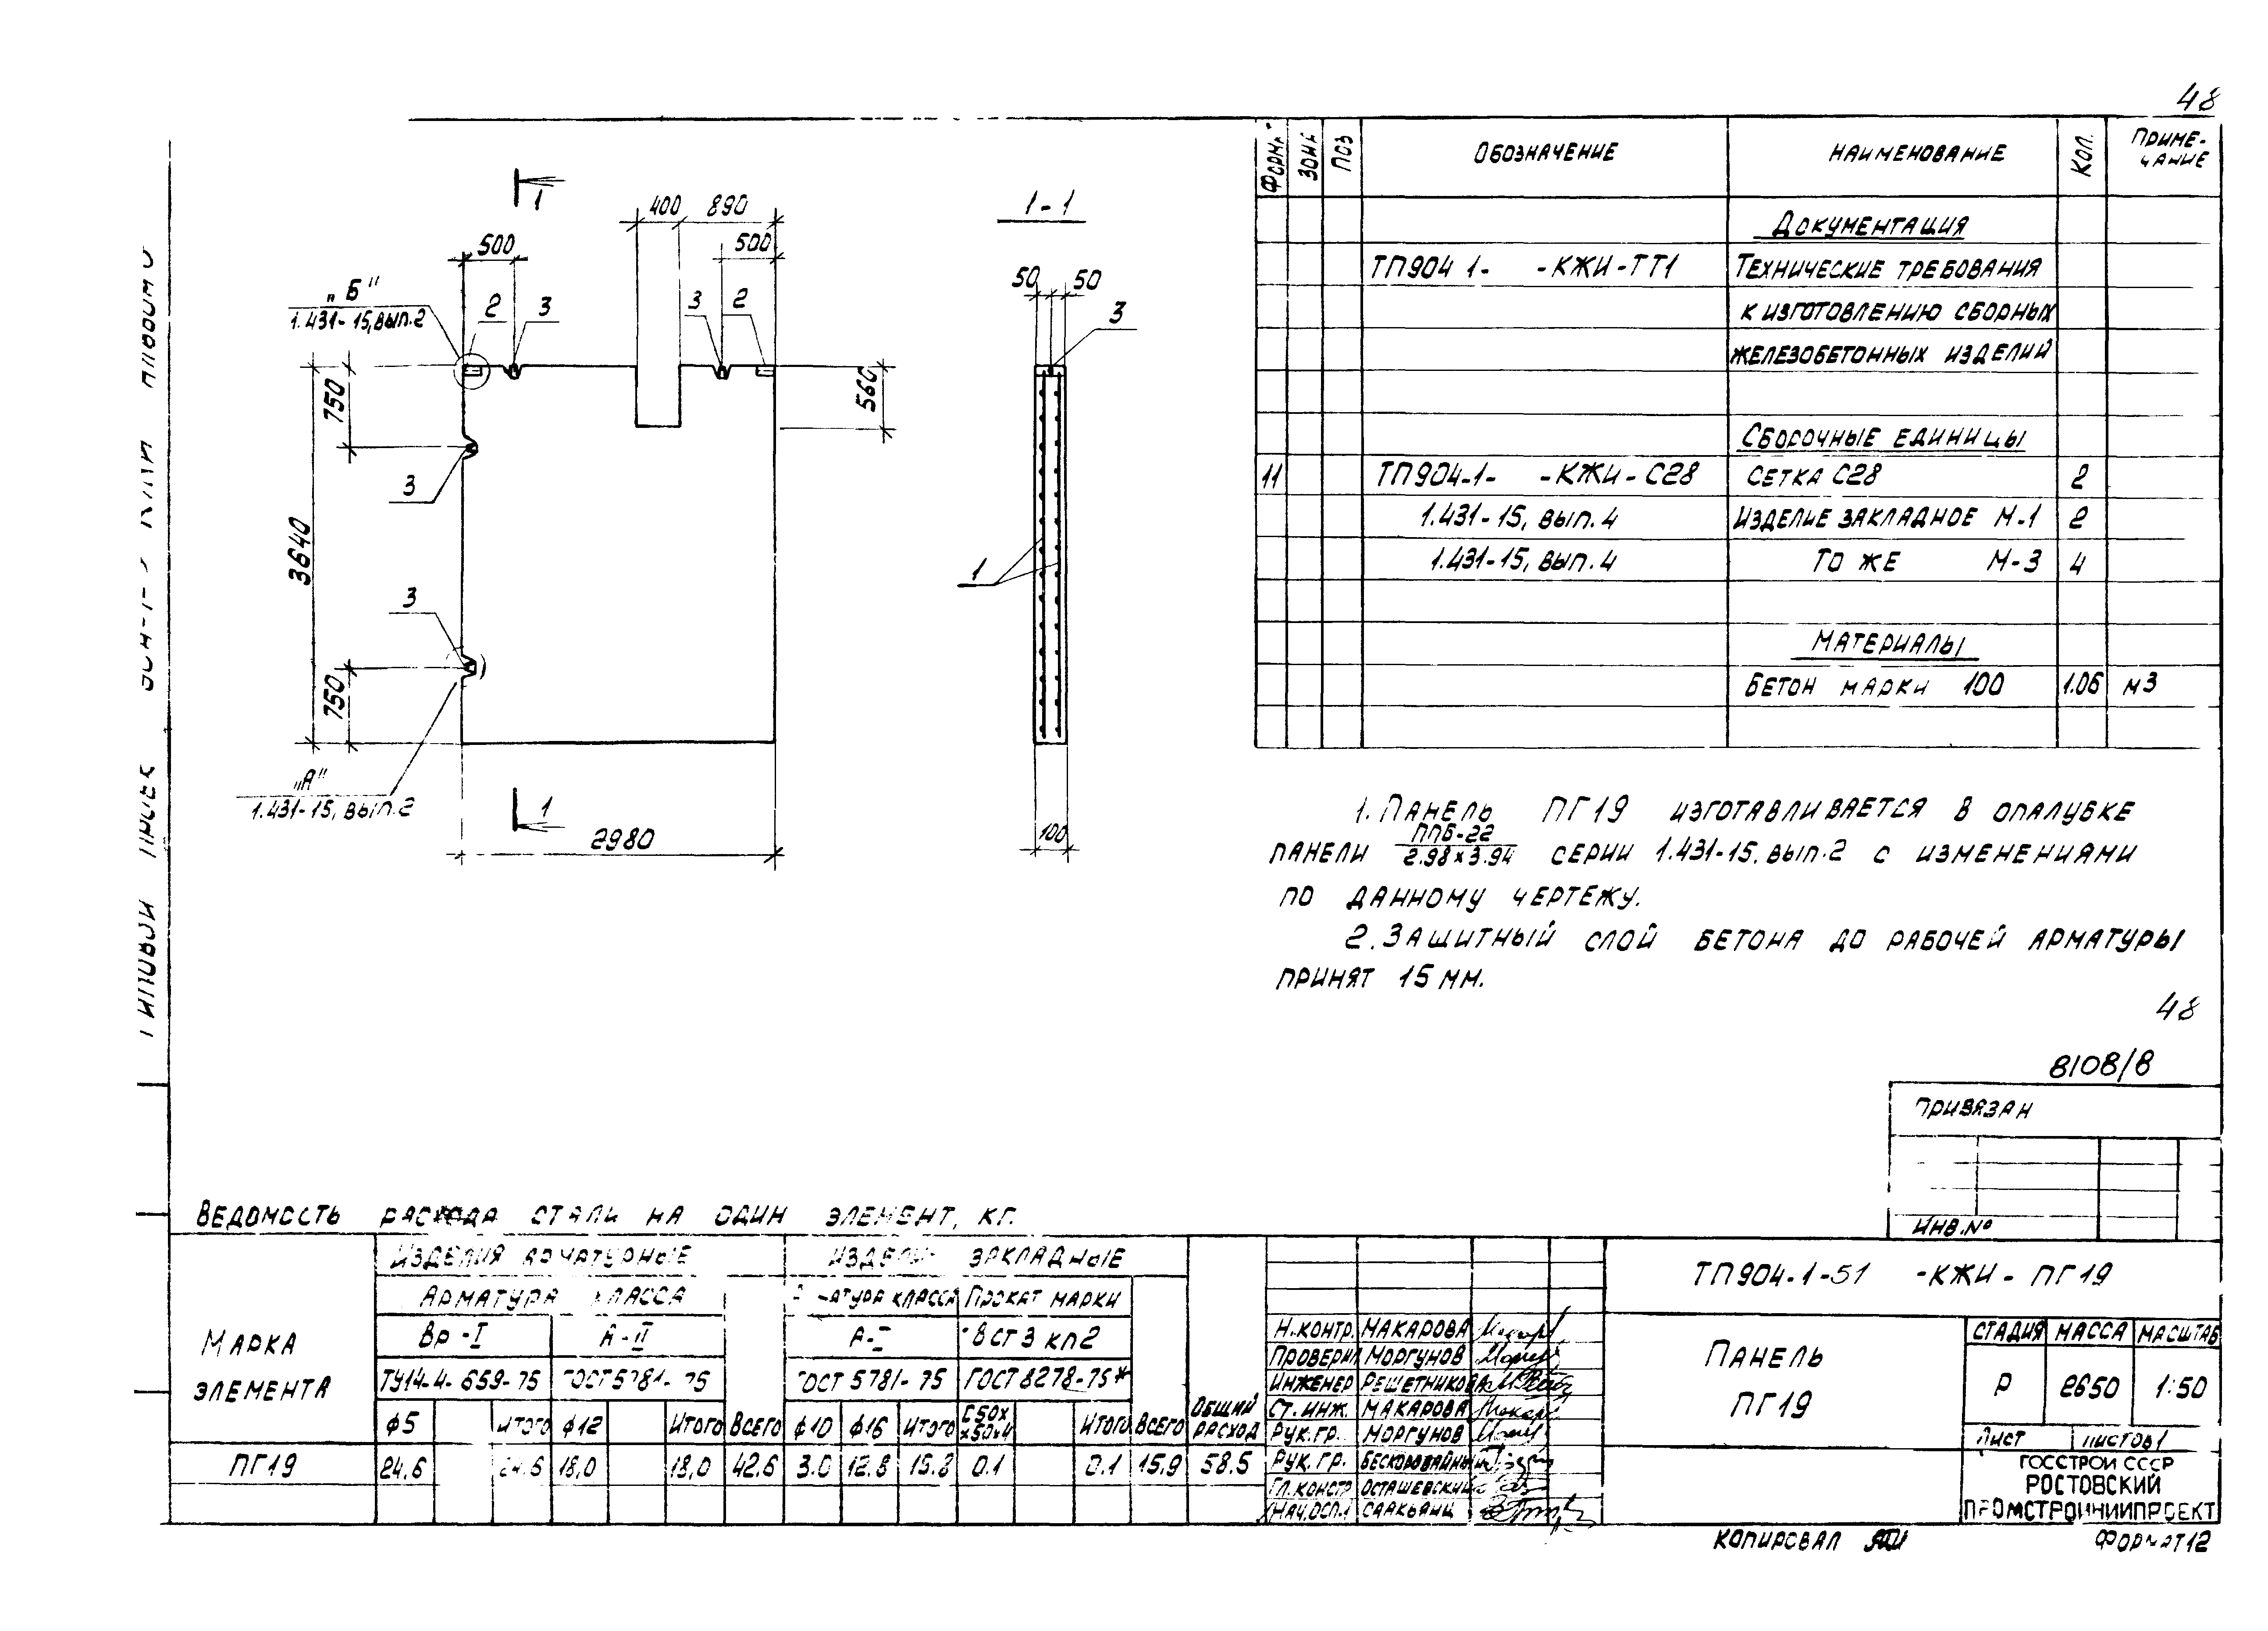 48
1
400 890
500 500
„Б"
1.431-15, вып.2
2 3 3 2
750
560
3
3640
3
750
„А"
1.431-15, вып.2
1
2980
1-1
50 50
3
1
100
Форма ЗОНА ПОЗ ОБОЗНАЧЕНИЕ НАИМЕНОВАНИЕ КОЛ. ПРИМЕ-
ЧАНИЕ
ДОКУМЕНТАЦИЯ
ТП904 1- -КЖИ-ТТ1 ТЕХНИЧЕСКИЕ ТРЕБОВАНИЯ
К ИЗГОТОВЛЕНИЮ СБОРНЫХ
ЖЕЛЕЗОБЕТОННЫХ ИЗДЕЛИЙ
СБОРОЧНЫЕ ЕДИНИЦЫ
11 ТП904-1- -КЖИ-С28 СЕТКА С28 2
1.431-15, вып.4 ИЗДЕЛИЕ ЗАКЛАДНОЕ М-1 2
1.431-15, вып.4 ТО ЖЕ М-3 4
МАТЕРИАЛЫ
БЕТОН МАРКИ 100 1.06 м3
1. ПАНЕЛЬ ПГ19 ИЗГОТАВЛИВАЕТСЯ В ОПАЛУБКЕ
ПАНЕЛИ ППБ-22
2.98×3.94 СЕРИИ 1.431-15. ВЫП.2 С ИЗМЕНЕНИЯМИ
ПО ДАННОМУ ЧЕРТЕЖУ.
2. ЗАЩИТНЫЙ СЛОЙ БЕТОНА ДО РАБОЧЕЙ АРМАТУРЫ
ПРИНЯТ 15 ММ.
48
8108/8
ПРИВЯЗАН
ИНВ.№
ВЕДОМОСТЬ РАСХОДА СТАЛИ НА ОДИН ЭЛЕМЕНТ, КГ.
МАРКА
ЭЛЕМЕНТА
ИЗДЕЛИЯ АРМАТУРНЫЕ ИЗДЕЛИЯ ЗАКЛАДНЫЕ
АРМАТУРА КЛАССА АРМАТУРА КЛАССА ПРОКАТ МАРКИ
Вр-I А-II А-I ВСТ3 кп2
ТУ14-4-659-75 ГОСТ5781-75 ГОСТ 5781-75 ГОСТ 8278-75*
ф5 ИТОГО ф12 ИТОГО ВСЕГО ф10 ф16 ИТОГО [50х
х50х4 ИТОГО ВСЕГО ОБЩИЙ
РАСХОД
ПГ19 24.6 24.6 18,0 18,0 42.6 3.0 12.8 15.8 0.1 0.1 15.9 58.5
Н.КОНТР. МАКАРОВА
ПРОВЕРИЛ МОРГУНОВ
ИНЖЕНЕР РЕШЕТНИКОВА
СТ.ИНЖ. МАКАРОВА
РУК.ГР. МОРГУНОВ
РУК.ГР. БЕСКОРОВАЙНЫЙ
ГЛ.КОНСТР ОСТАШЕВСКИЙ
НАЧ.ОСП.1 СААКЬЯНЦ
ТП904-1-51 -КЖИ- ПГ19
ПАНЕЛЬ
ПГ19
СТАДИЯ МАССА МАСШТАБ
Р 2650 1:50
ЛИСТ ЛИСТОВ1
ГОССТРОЙ СССР
РОСТОВСКИЙ
ПРОМСТРОЙНИИПРОЕКТ
КОПИРОВАЛ
ФОРМАТ12